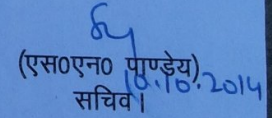 (एस०एन० पाण्डेय)
10.10.2014
सचिव।